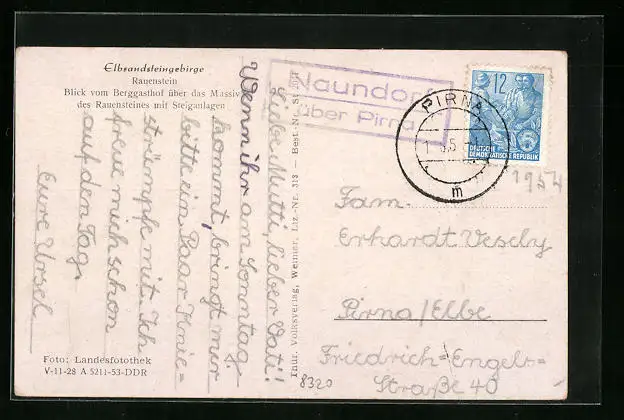 Elbsandsteingebirge
Rauenstein
Blick vom Berggasthof über das Massiv
des Rauensteines mit Steiganlagen
Liebe Mutti, lieber Vati!
Wenn ihr am Sonntag
kommt, bringt mir
bitte ein Paar Knie=
strümpfe mit. Ich
freue mich schon
auf den Tag.
Eure Ursel
Foto: Landesfotothek
V-11-28 A 5211-53-DDR
Thür. Volksverlag, Weimar, Liz.-Nr. 313 - Best.-Nr. St
8320
Naundorf
über Pirna
PIRNA
m
12
DEUTSCHE
DEMOKRATISCHE REPUBLIK
1954
Fam.
Erhardt Vesely
Pirna/Elbe
Friedrich=Engels=
Straße 40